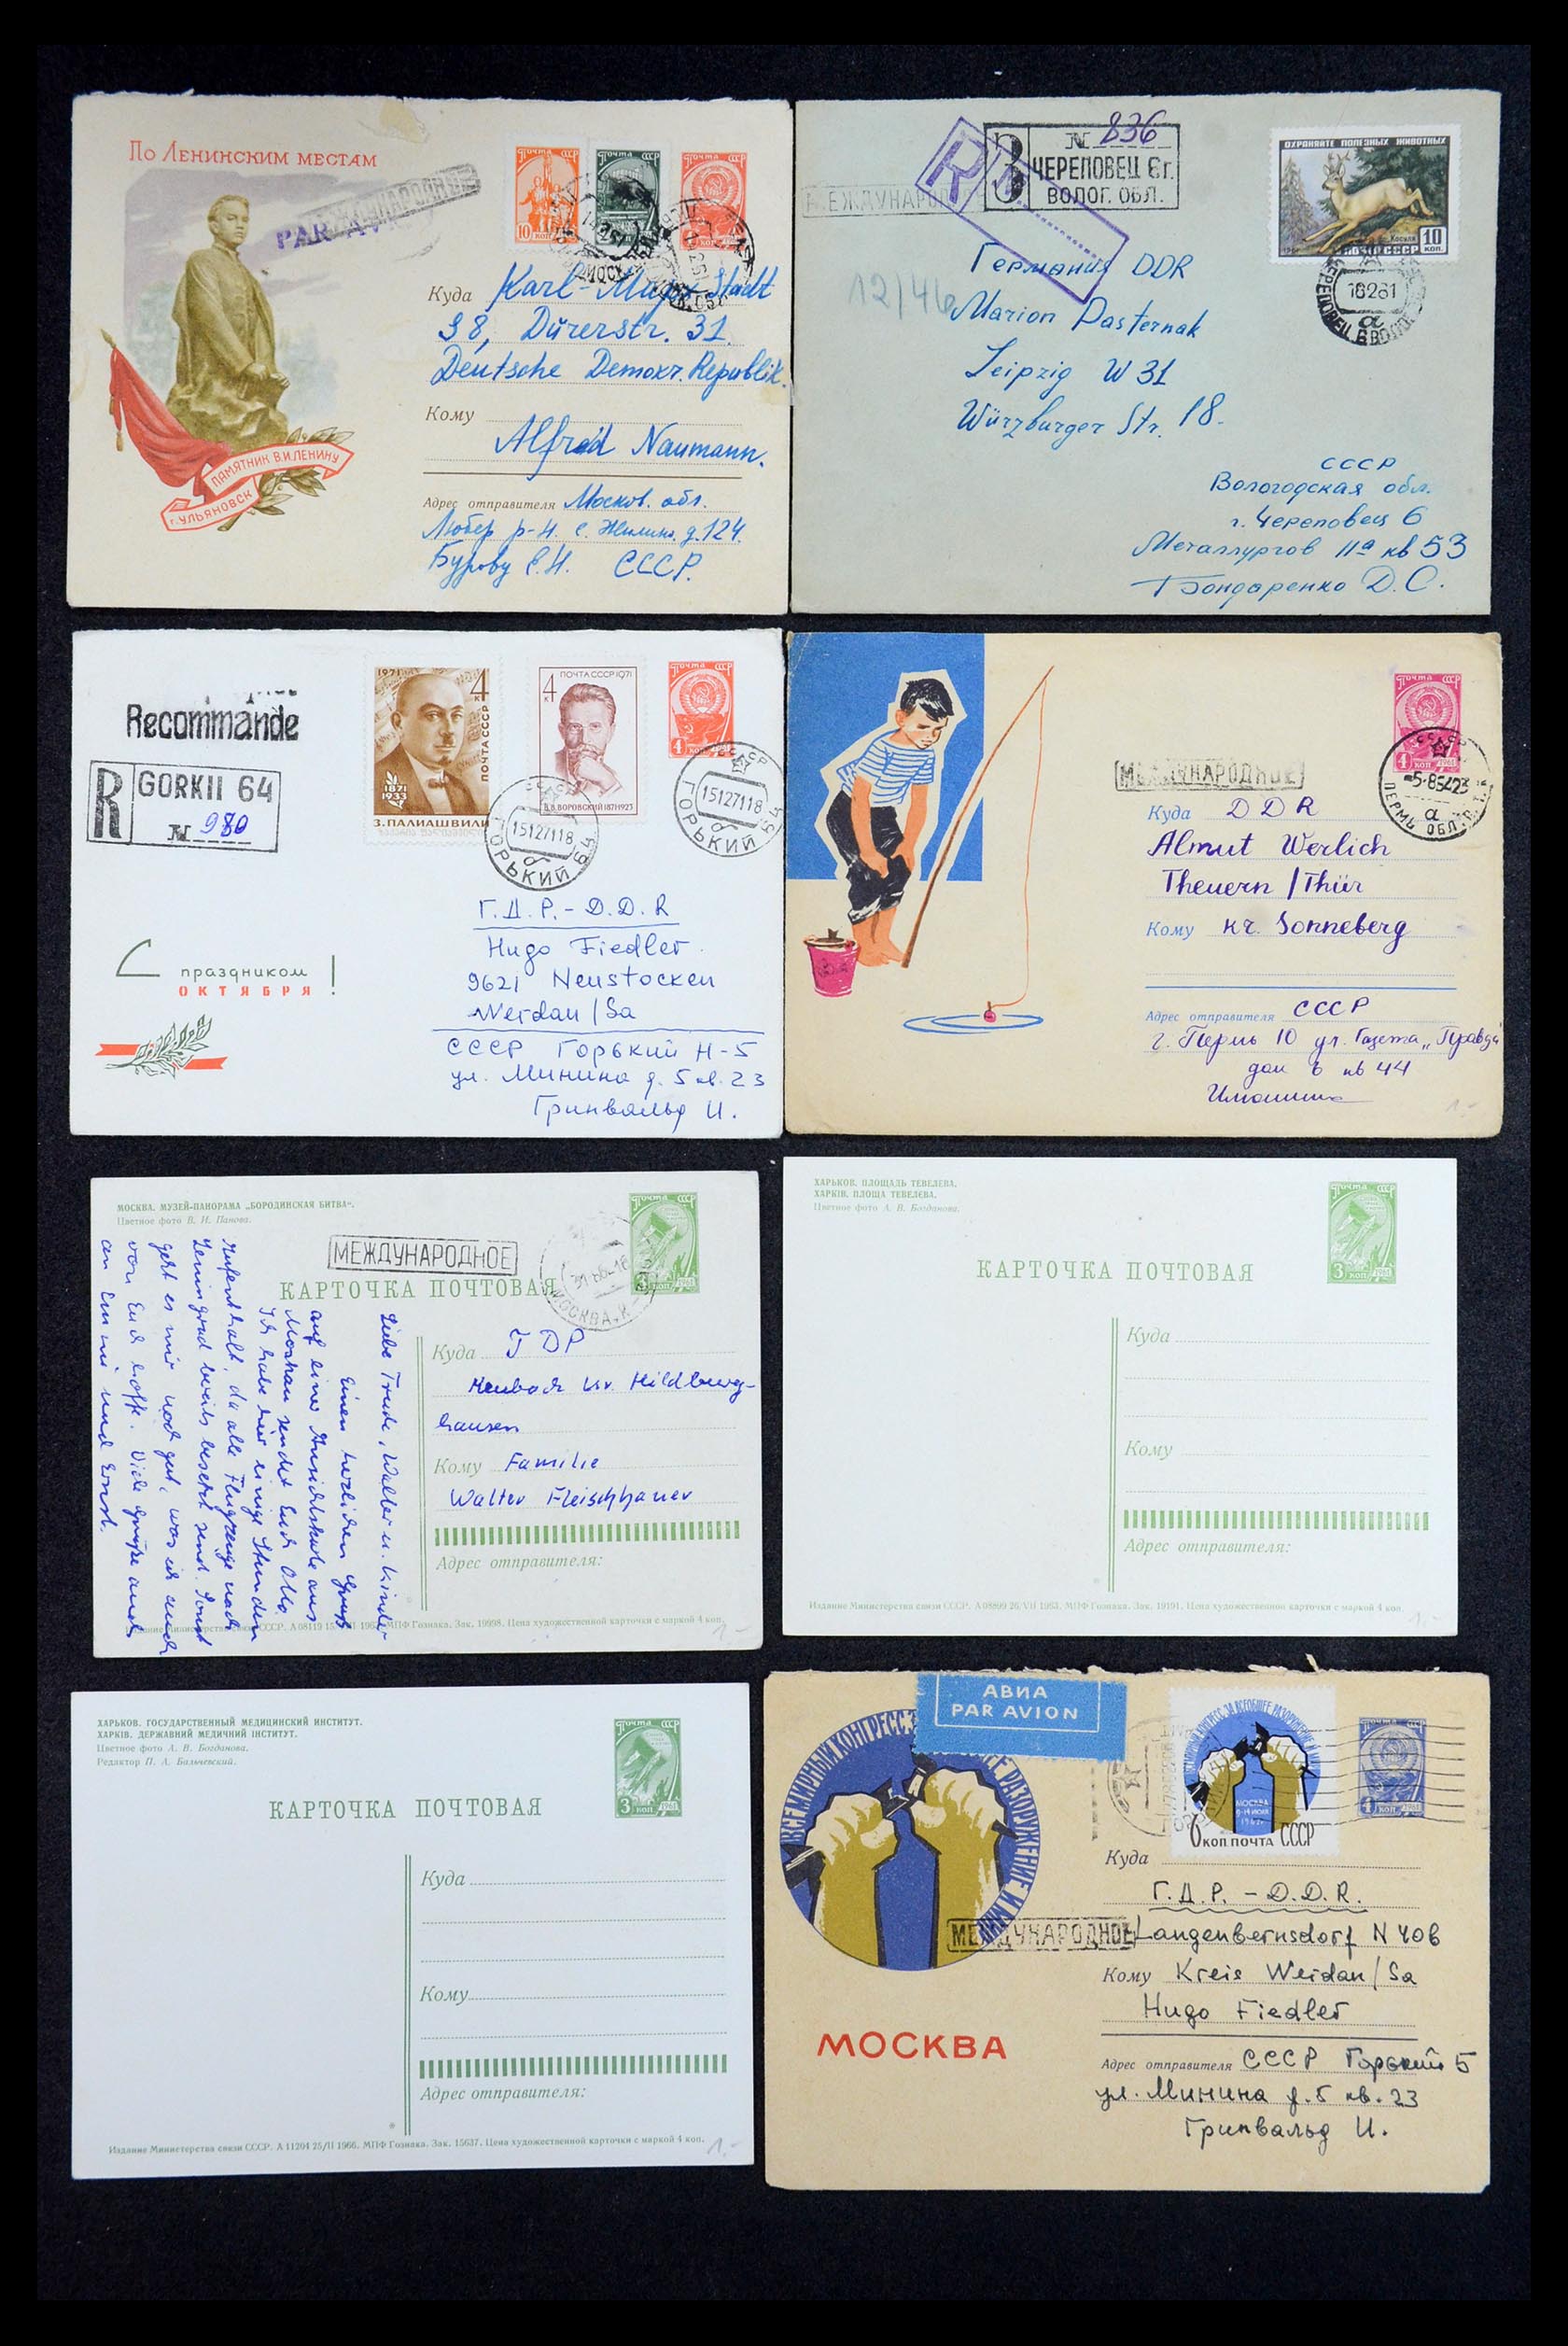 По Ленинским местам
МЕЖДУНАРОДНОЕ
PAR AVION
ПОЧТА СССР
10 КОП
ПОЧТА СССР
ПОЧТА СССР
Куда Karl-Marx-Stadt
98, Dürerstr. 31.
Deutsche Demokr. Republik.
Кому
Alfred Naumann.
Адрес отправителя Москов. обл.
Любер р-н. с. Жилино. д. 124.
Бурову Е.Н. СССР.
ПАМЯТНИК В.И.ЛЕНИНУ
г. УЛЬЯНОВСК
R
N 836
З ЧЕРЕПОВЕЦ 6г.
ВОЛОГ. ОБЛ.
МЕЖДУНАРОД
ОХРАНЯЙТЕ ПОЛЕЗНЫХ ЖИВОТНЫХ
Косуля
ПОЧТА СССР 10 КОП.
12/446
Германия DDR
Marion Pasternak
Leipzig W 31
Würzburger Str. 18.
СССР
Вологодская обл.
г. Череповец 6
Металлургов 11а кв 53
Бондаренко Д.С.
Recommande
R GORKII 64
N 980
1971
4
ПОЧТА СССР
1871
1933
З.ПАЛИАШВИЛИ
4к ПОЧТА СССР 1971
В.В.ВОРОВСКИЙ 1871 1923
ПОЧТА СССР
4 КОП 1961
ГОРЬКИЙ 64
15127118
а
ГОРЬКИЙ 64
15127118
а
Г.Д.Р.-D.D.R
Hugo Fiedler
9621 Neustocken
Werdau/Sa
СССР Горький Н-5
ул. Минина д. 5 кв. 23
Гринвальд И.
С праздником
ОКТЯБРЯ!
ПОЧТА СССР
4 КОП 1961
МЕЖДУНАРОДНОЕ
ПЕРМЬ ОБЛ.
а
Куда DDR
Almut Werlich
Theuern/Thür
Кому кr. Sonneberg
Адрес отправителя СССР
г. Пермь 10 ул. Газета „Правда"
дом 6 кв 44
1.-
МОСКВА. МУЗЕЙ-ПАНОРАМА „БОРОДИНСКАЯ БИТВА".
Цветное фото В. И. Панова.
МЕЖДУНАРОДНОЕ
КАРТОЧКА ПОЧТОВАЯ
ПОЧТА СССР
3 КОП 1961
МОСКВА
Liebe Trude, Walter u. Kinder
Einen herzlichen Gruß
auf einer Ansichtskarte aus
Moskau sendet Euch Otto.
Ich habe hier einige Stunden
Aufenthalt, da alle Flugzeuge nach
Leningrad bereits besetzt sind. Sonst
geht es mir noch gut, was ich auch
von Euch hoffe. Viele Grüße auch
an Emmi und Ernst.
Куда ГДР
Heubach Kr. Hildburg-
hausen
Кому Familie
Walter Fleischhauer
Адрес отправителя:
Зак. 19998. Цена художественной карточки с маркой 4 коп.
1.-
ХАРЬКОВ. ПЛОЩАДЬ ТЕВЕЛЕВА.
ХАРКІВ. ПЛОЩА ТЕВЕЛЄВА.
Цветное фото А. В. Богданова.
КАРТОЧКА ПОЧТОВАЯ
ПОЧТА СССР
3 КОП 1961
Куда
Кому
Адрес отправителя:
Издание Министерства связи СССР. А 08899 26. VII 1963. МПФ Гознака. Зак. 19191. Цена художественной карточки с маркой 4 коп.
1.-
ХАРЬКОВ. ГОСУДАРСТВЕННЫЙ МЕДИЦИНСКИЙ ИНСТИТУТ.
ХАРКІВ. ДЕРЖАВНИЙ МЕДИЧНИЙ ІНСТИТУТ.
Цветное фото А. В. Богданова.
Редактор П. А. Бальчевский.
КАРТОЧКА ПОЧТОВАЯ
ПОЧТА СССР
3 КОП 1961
Куда
Кому
Адрес отправителя:
Издание Министерства связи СССР. А 11204 25/II 1966. МПФ Гознака. Зак. 15637. Цена художественной карточки с маркой 4 коп.
1.-
АВИА
PAR AVION
ВСЕМИРНЫЙ КОНГРЕСС ЗА ВСЕОБЩЕЕ РАЗОРУЖЕНИЕ И МИР
МОСКВА
9-14 ИЮЛЯ
1962г
6 КОП ПОЧТА СССР
ПОЧТА СССР
4 КОП 1961
МЕЖДУНАРОДНОЕ
МОСКВА
Куда
Г.Д.Р.-D.D.R.
Langenbernsdorf N 40b
Кому Kreis Werdau/Sa
Hugo Fiedler
Адрес отправителя СССР Горький 5
ул. Минина д. 5 кв. 23
Гринвальд И.